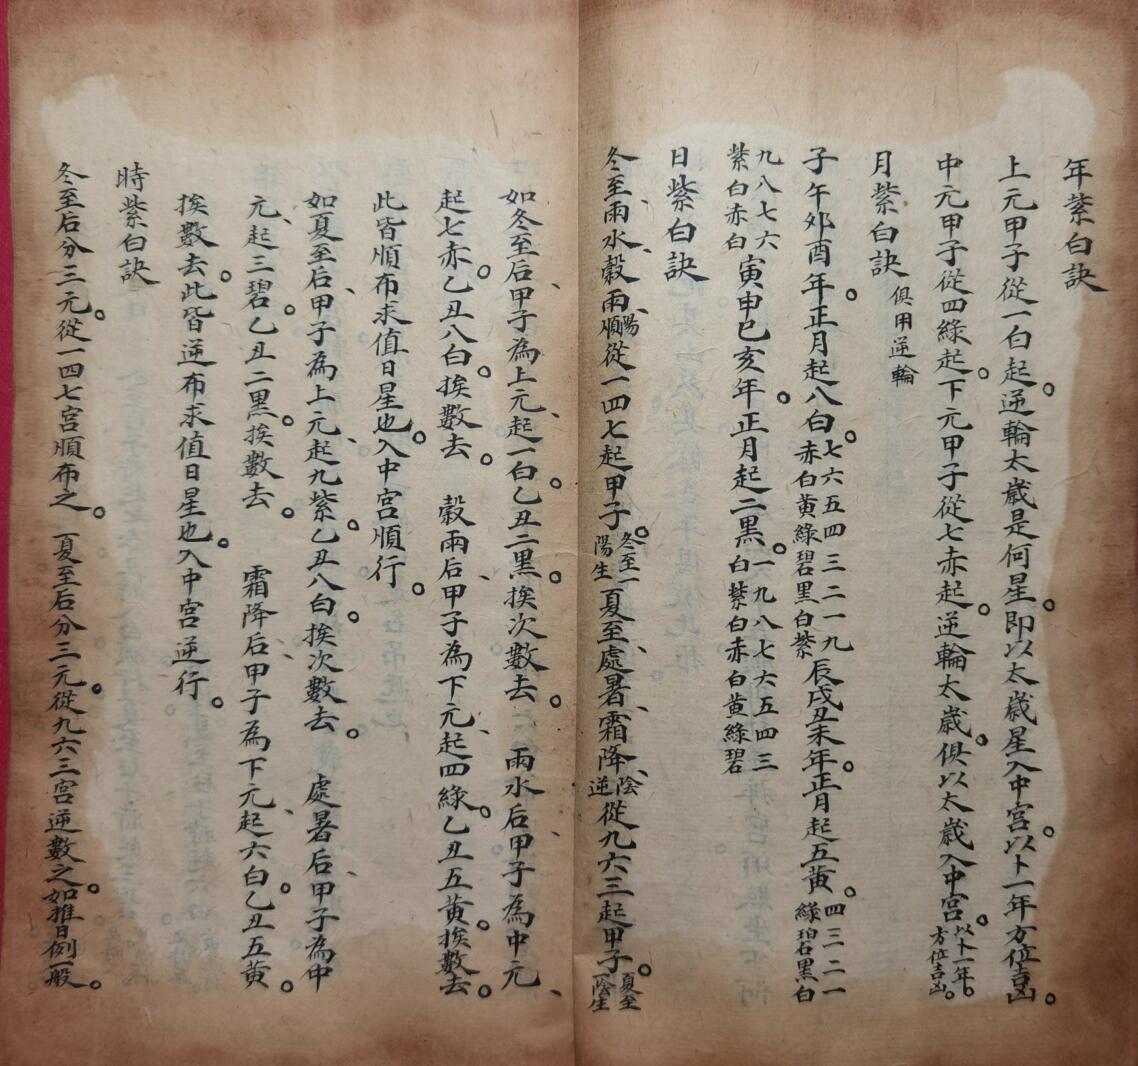 年紫白訣
上元甲子從一白起逆輪太歲是何星即以太歲星入中宮以卜一年方位吉凶
中元甲子從四綠起下元甲子從七赤起逆輪太歲俱以太歲入中宮以卜一年方位吉凶
月紫白訣 俱用逆輪
子午夘酉年正月起八白七六五四三二一九赤白黃綠碧黑白紫辰戌丑未年正月起五黃四三二一綠碧黑白
九八七六紫白赤白寅申巳亥年正月起二黑一九八七六五四三白紫白赤白黃綠碧
日紫白訣
冬至雨水穀雨陽順從一四七起甲子冬至一陽生夏至處暑霜降陰逆從九六三起甲子夏至一陰生
如冬至后甲子為上元起一白乙丑二黑挨次數去 雨水后甲子為中元
起七赤乙丑八白挨數去 穀雨后甲子為下元起四綠乙丑五黃挨數去
此皆順布求值日星也入中宮順行
如夏至后甲子為上元起九紫乙丑八白挨次數去 處暑后甲子為中
元起三碧乙丑二黑挨數去 霜降后甲子為下元起六白乙丑五黃
挨數去此皆逆布求值日星也入中宮逆行
時紫白訣
冬至后分三元從一四七宮順布之 夏至后分三元從九六三宮逆數之如推日例一般